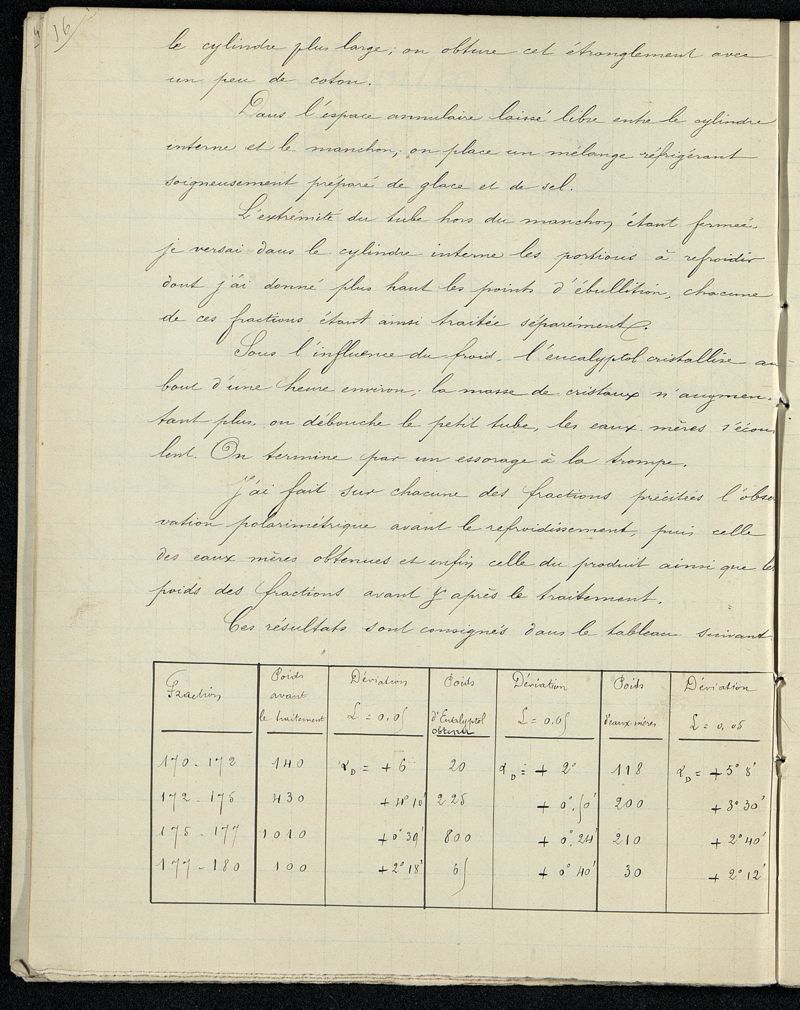 16
le cylindre plus large; on obture cet étranglement avec
un peu de coton.
Dans l'espace annulaire laissé libre entre le cylindre
interne et le manchon, on place un mélange réfrigérant
soigneusement préparé de glace et de sel.
L'extrémité du tube hors du manchon étant fermée,
je versai dans le cylindre interne les portions à refroidir
dont j'ai donné plus haut les points d'ébullition, chacune
de ces fractions étant ainsi traitée séparément.
Sous l'influence du froid, l'eucalyptol cristallise au
bout d'une heure environ; la masse de cristaux n'augmen-
tant plus, on débouche le petit tube, les eaux mères s'écou
lent. On termine par un essorage à la trompe.
J'ai fait sur chacune des fractions précitées l'obser
vation polarimétrique avant le refroidissement, puis celle
des eaux mères obtenues et enfin celle du produit ainsi que les
poids des fractions avant & après le traitement.
Ces résultats sont consignés dans le tableau suivant
Fraction | Poids avant le traitement | Déviation L = 0.05 | Poids d'Eucalyptol obtenu | Déviation L = 0.05 | Poids d'eaux-mères | Déviation L = 0,05
170-172 | 140 | αD = + 6 | 20 | αD = + 2° | 118 | αD = + 5° 8'
172-175 | 430 | + 4° 10' | 225 | + 0°.50' | 200 | + 3° 30'
175-177 | 1010 | + 0° 39' | 800 | + 0°.24' | 210 | + 2° 40'
177-180 | 100 | + 2° 18' | 65 | + 0° 40' | 30 | + 2° 12'